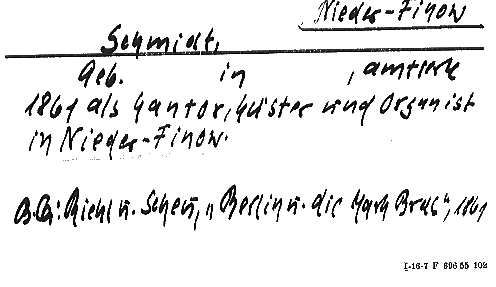 Nieder-Finow
Schmidt,
Geb. in , amtierte
1861 als Kantor, Küster und Organist
in Nieder-Finow.
B.Qu: Riehl u. Scheu, „Berlin u. die Mark Brdbg", 1861
I-16-7 F 696 55 102